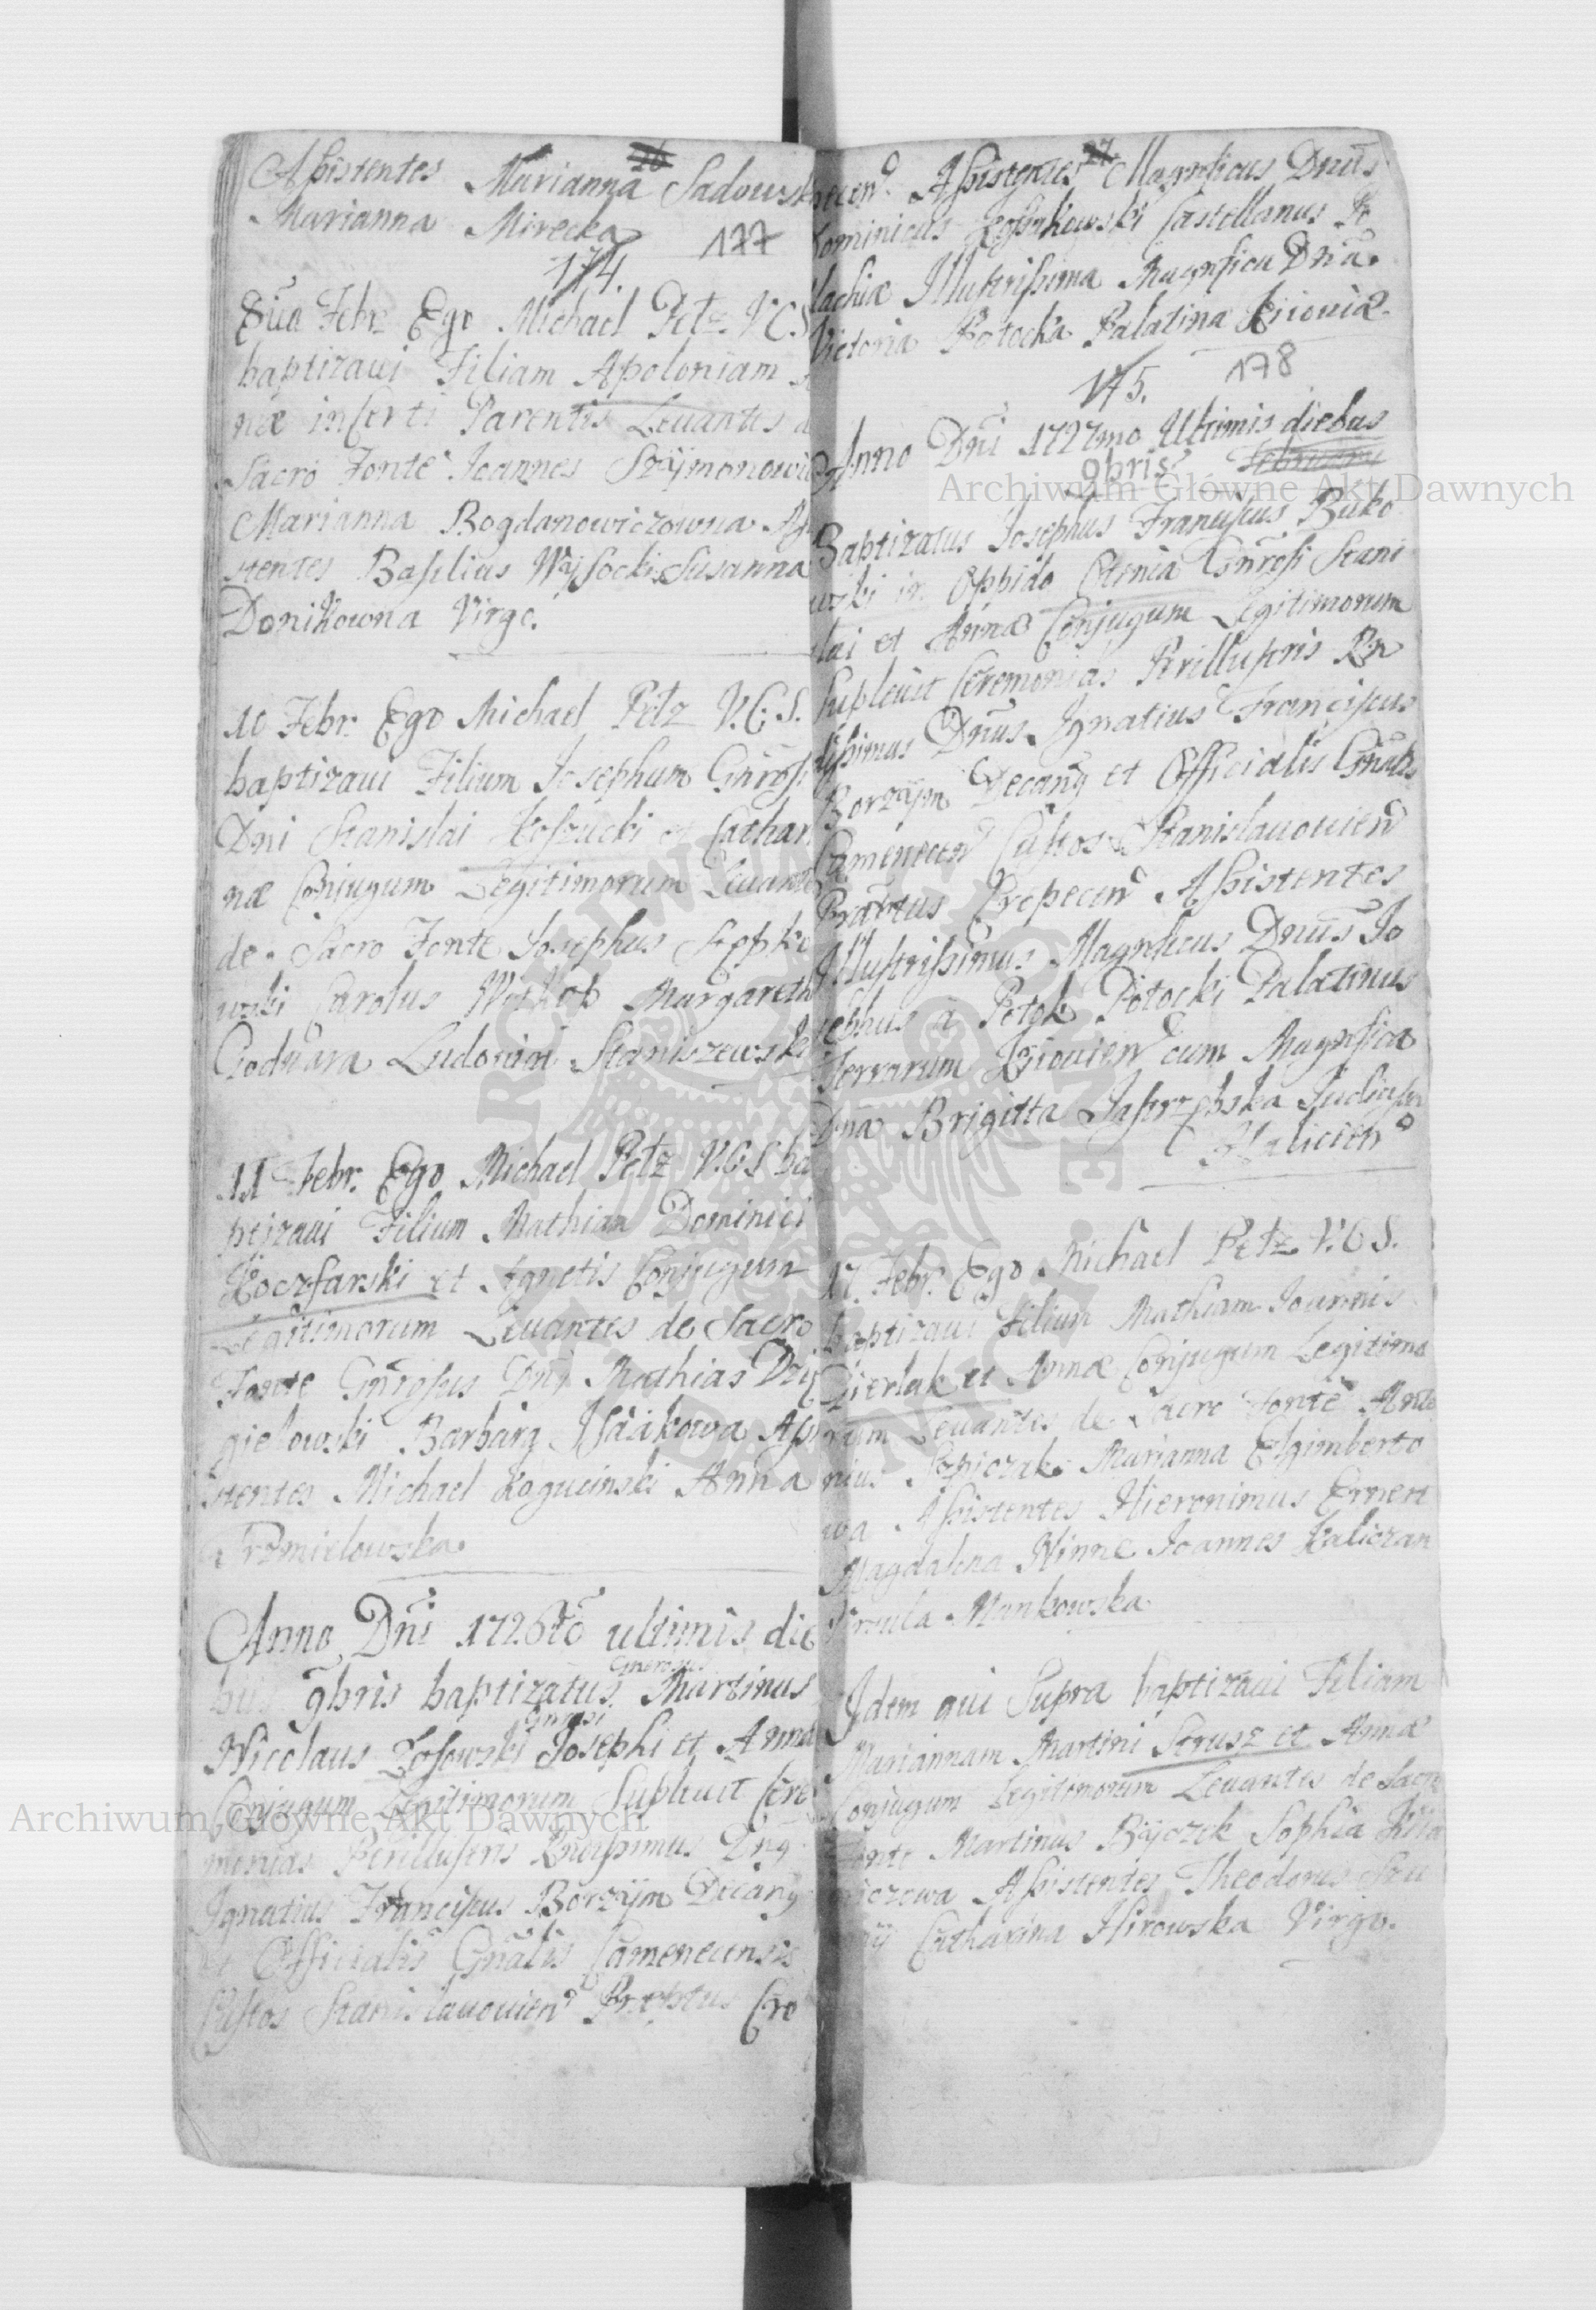 Assistentes Marianna Sadowsk
Marianna Mirecka 177
174.
8ua Febr Ego Michael Petz V.C.S
baptizaui Filiam Apoloniam
næ incerti Parentis Leuantes d
Sacro Fonte Joannes Szÿmonowic
Marianna Bogdanowiczowna As
stentes Basilius Wÿsocki Susanna
Donikowna Virgo.
10 Febr. Ego Michael Petz V.C.S.
baptizaui Filium Josephum Gnrosi
Dni Stanislai Koszucki et Cathar
næ Conjugum Legitimorum Leuant
de Sacro Fonte Josephus Sepko
wski Carolus Margareth
Ludovica Staniszewski
11 Febr. Ego Michael Petz V.C.S ba
ptizaui Filium Mathiam Dominici
Koczfarski et Agnetis Conjugum
Legitimorum Leuantes de Sacro
Fonte Gnrosus Dns Mathias Dzi
gielowski Barbara Isaakowa Assi
stentes Michael Kogucinski Anna
Trzmielowska.
Anno Dni 1726to ultimis die
bus 9bris baptizatus Generosus Martinus
Nicolaus Zosowski Gnrosi Josephi et Anna
Conjugum Legitimorum Supleuit Cere
monias Perillustris Rndissimus Dnq
Ignatius Franciscus Borzÿm Decanq
et Officialis Gnalis Camenecensis
Custos Stanislauouien Præptus Cro
pecen Assistentes Magnificus Dnus
Dominicus Kossakowski Castellanus Po
lachiæ Illustrissima Magnifica Dna
Victoria Potocka Palatina Kijouiæ
175. 178
Anno Dni 1727mo Ultimis diebus
9bris Februarii
Baptizatus Josephus Franciscus Buko
wski in Oppido Otenia Gnrosi Stani
slai et Annæ Conjugum Legitimorum
Supleuit Ceremonias Perillustris Rn
dissimus Dnus Ignatius Franciscus
Borzÿm Decanq et Officialis Gnalis
Camenecen Custos Stanislauouien
Præptus Cropecen Assistentes
Illustrissimus Magnificus Dnus Jo
sephus a Potok Potocki Palatinus
Terrarum Kijouien cum Magnifica
Dna Brigitta Jastrzębska
Halicien
17. Febr. Ego Michael Petz V.C.S.
baptizaui Filium Mathiam Joannis
Cierlak et Annæ Conjugum Legitimo
rum Leuantes de Sacro Fonte Anto
nius Szpiczak Marianna Elgimberto
wa Assistentes Hieronimus Ernest
Magdalena Winne Joannes Kaliczan
Ursula Mankowska
Idem qui Supra baptizaui Filiam
Mariannam Martini Strusz et Annæ
Conjugum Legitimorum Leuantes de Sacro
Fonte Martinus Bÿczek Sophia
Assistentes Theodorus
Catharina Hirowska Virgo.
Archiwum Główne Akt Dawnych
Archiwum Główne Akt Dawnych
ARCHIWUM GŁÓWNE AKT DAWNYCH